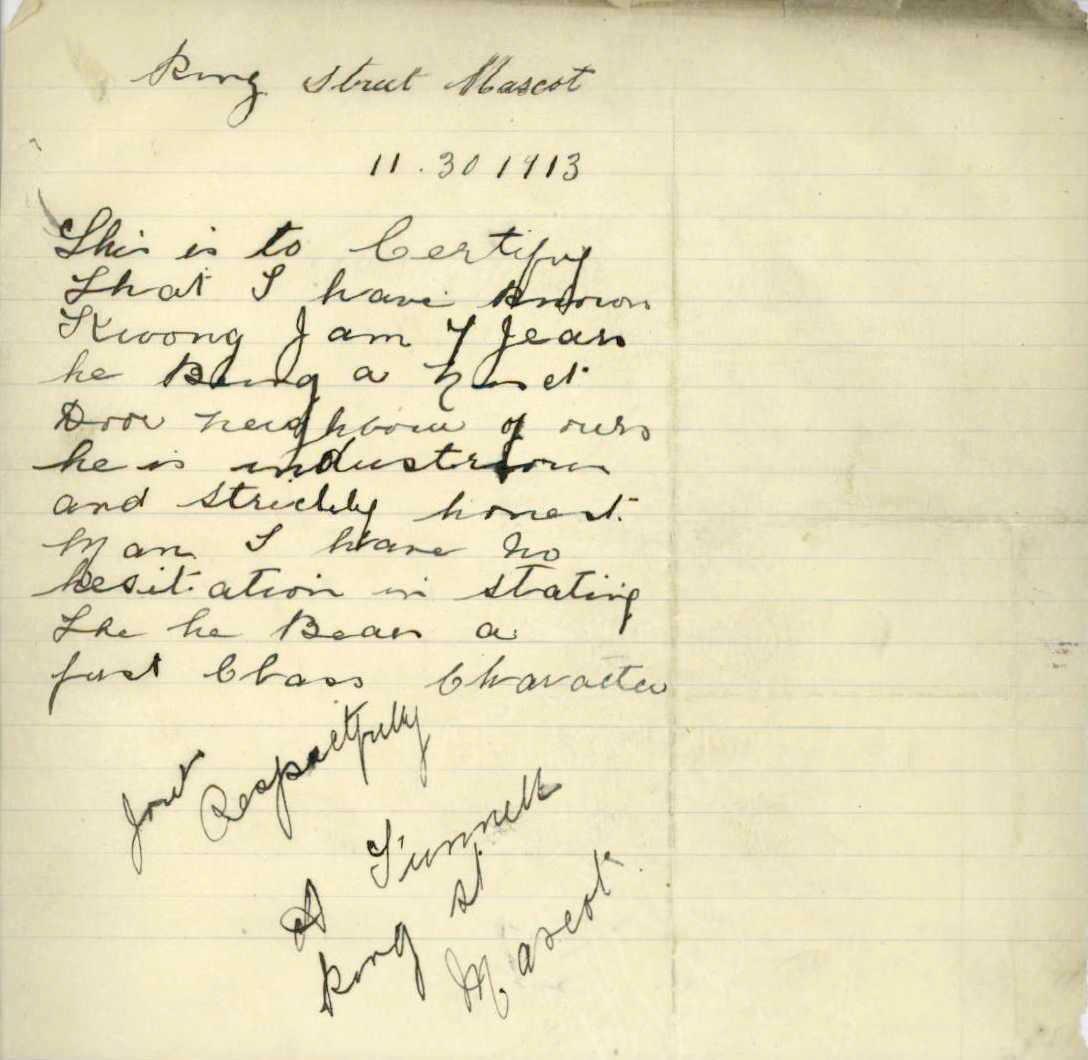 King Street Mascot
11.30 1913
This is to Certify
That I have known
Kwong Jam 7 Years
he Being a next
Door neighbour of ours
he is industrious
and strickly honest
Man I have no
hesitation in stating
The he Bears a
first Class Character
Yours Respectfully
A Tunnell
King st
Mascot